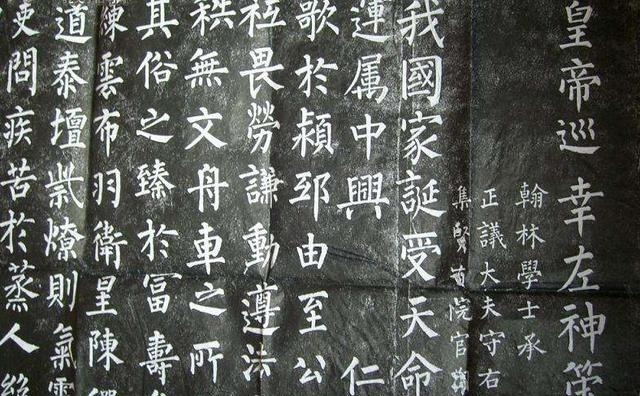 皇帝巡幸左神策
翰林學士承
正議大夫守右
集賢直院官
我國家誕受天命
運属中興 仁
歌於潁邸由至公
祗畏勞謙動遵法
秩無文舟車之所
其俗之臻於冨壽
練雲布羽衛星陳
道泰壇祡燎則氣
使問疾苦於蒸人